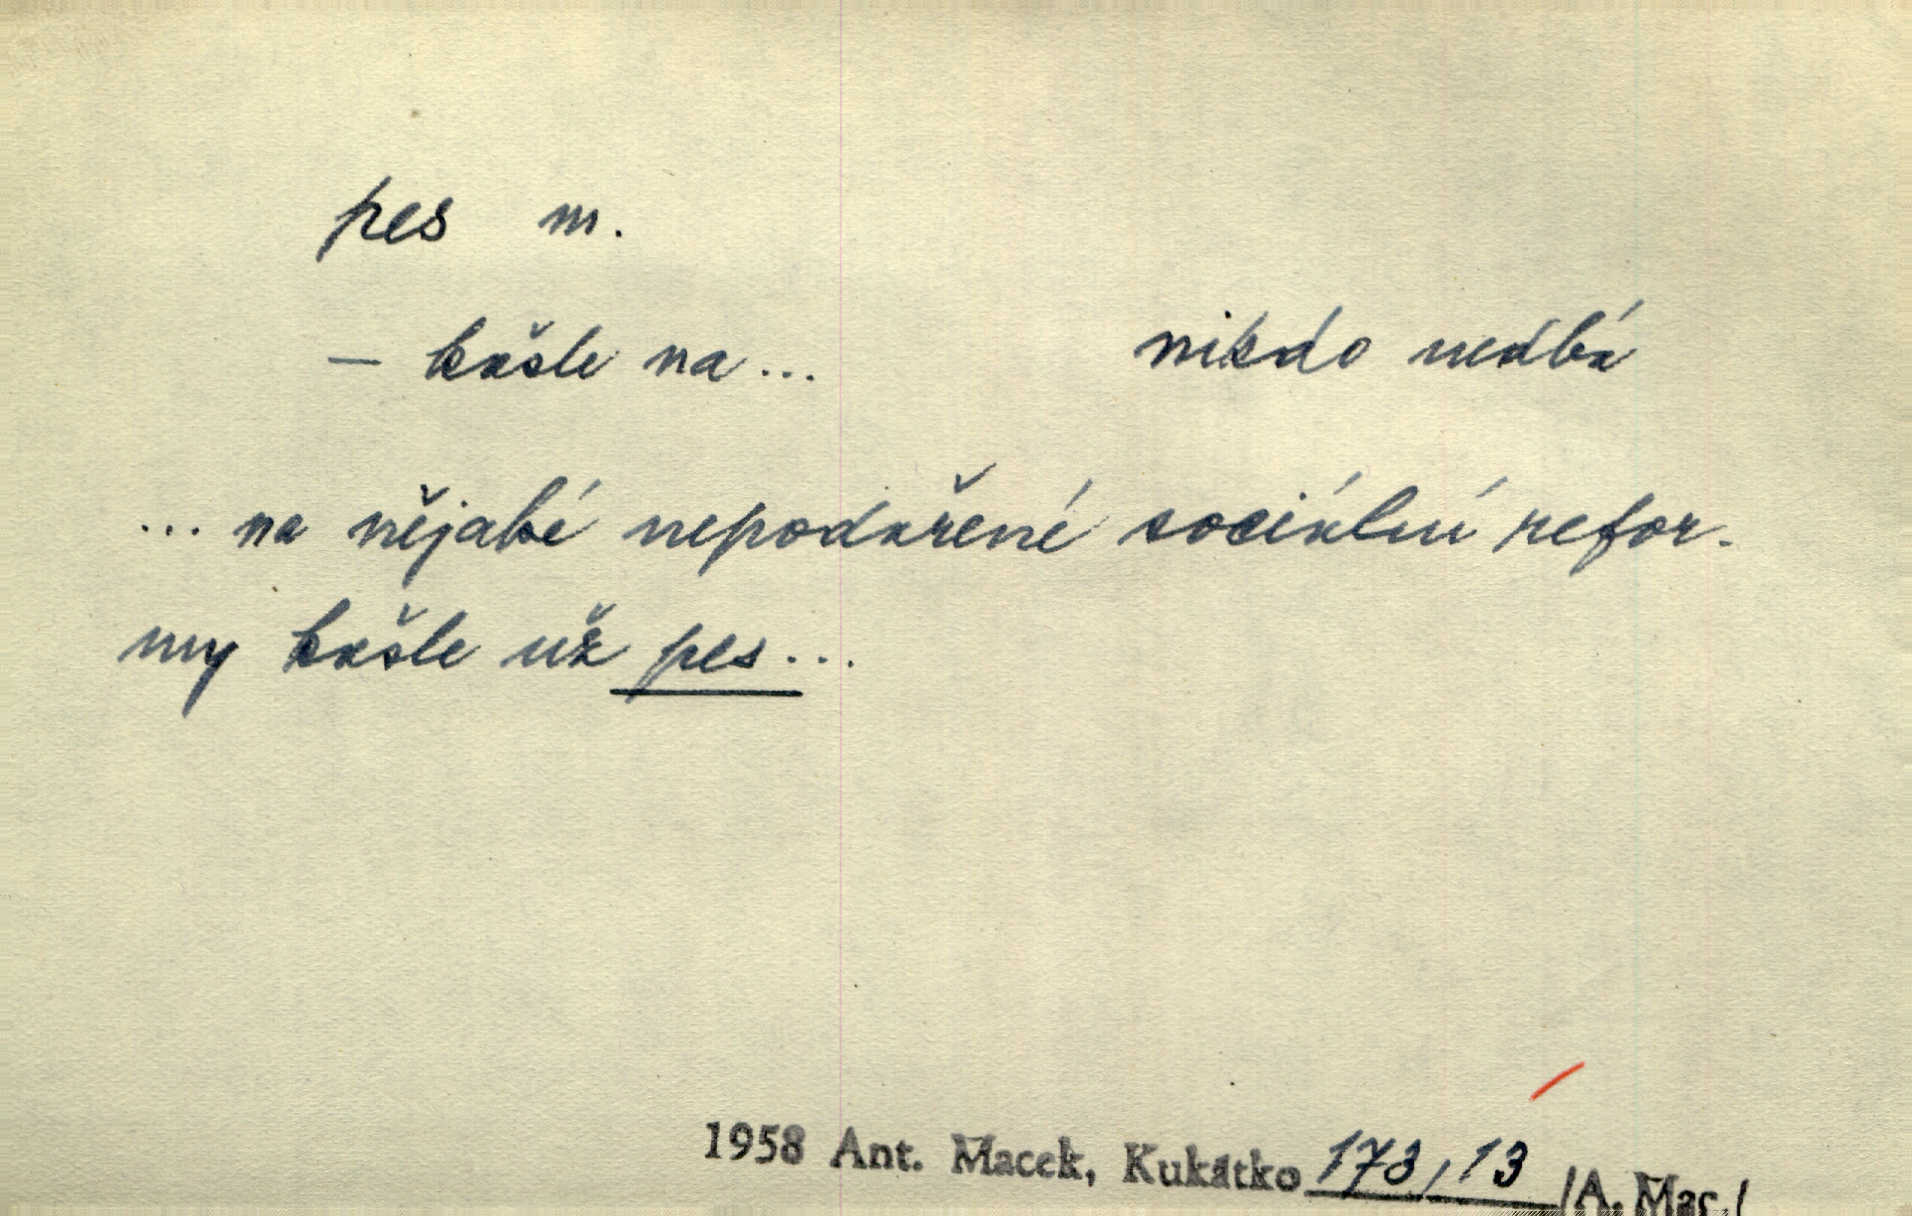 pes m.
– kašle na... nikdo nedbá
... na nějaké nepodařené sociální refor-
my kašle už pes...
1958 Ant. Macek, Kukátko 173,13 /A. Mac./